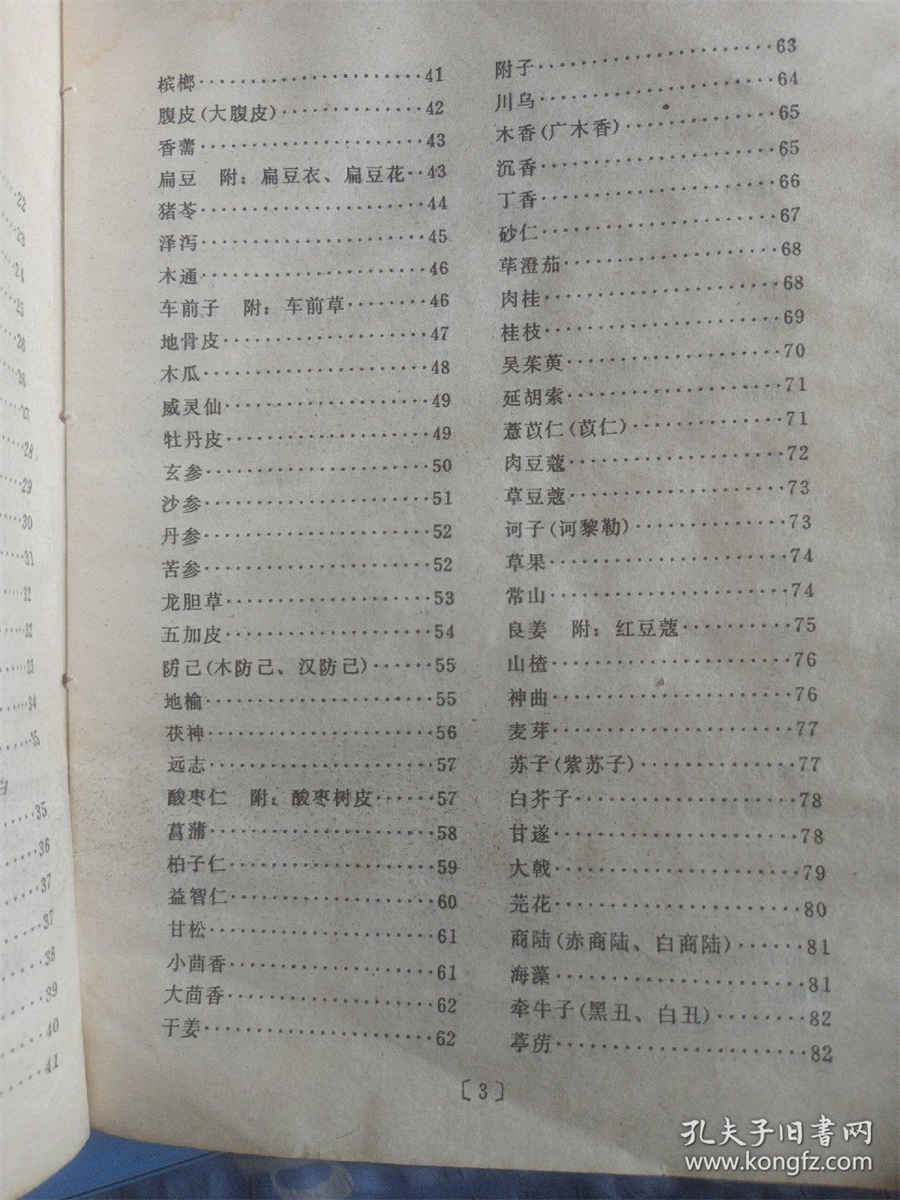 22
23
24
25
28
29
30
31
32
32
33
34
35
35
36
37
37
38
39
40
41
槟榔……………………41
腹皮(大腹皮)……………42
香薷……………………43
扁豆　附：扁豆衣、扁豆花··43
猪苓……………………44
泽泻……………………45
木通……………………46
车前子　附：车前草………46
地骨皮…………………47
木瓜……………………48
威灵仙…………………49
牡丹皮…………………49
玄参……………………50
沙参……………………51
丹参……………………52
苦参……………………52
龙胆草…………………53
五加皮…………………54
防己(木防己、汉防己)……55
地榆……………………55
茯神……………………56
远志……………………57
酸枣仁　附：酸枣树皮……57
菖蒲……………………58
柏子仁…………………59
益智仁…………………60
甘松……………………61
小茴香…………………61
大茴香…………………62
干姜……………………62
附子……………………63
川乌……………………64
木香(广木香)……………65
沉香……………………65
丁香……………………66
砂仁……………………67
荜澄茄…………………68
肉桂……………………68
桂枝……………………69
吴茱萸…………………70
延胡索…………………71
薏苡仁(苡仁)……………71
肉豆蔻…………………72
草豆蔻…………………73
诃子(诃黎勒)……………73
草果……………………74
常山……………………74
良姜　附：红豆蔻…………75
山楂……………………76
神曲……………………76
麦芽……………………77
苏子(紫苏子)……………77
白芥子…………………78
甘遂……………………78
大戟……………………79
芫花……………………80
商陆(赤商陆、白商陆)……81
海藻……………………81
牵牛子(黑丑、白丑)………82
葶苈……………………82
〔3〕
孔夫子旧书网
www.kongfz.com